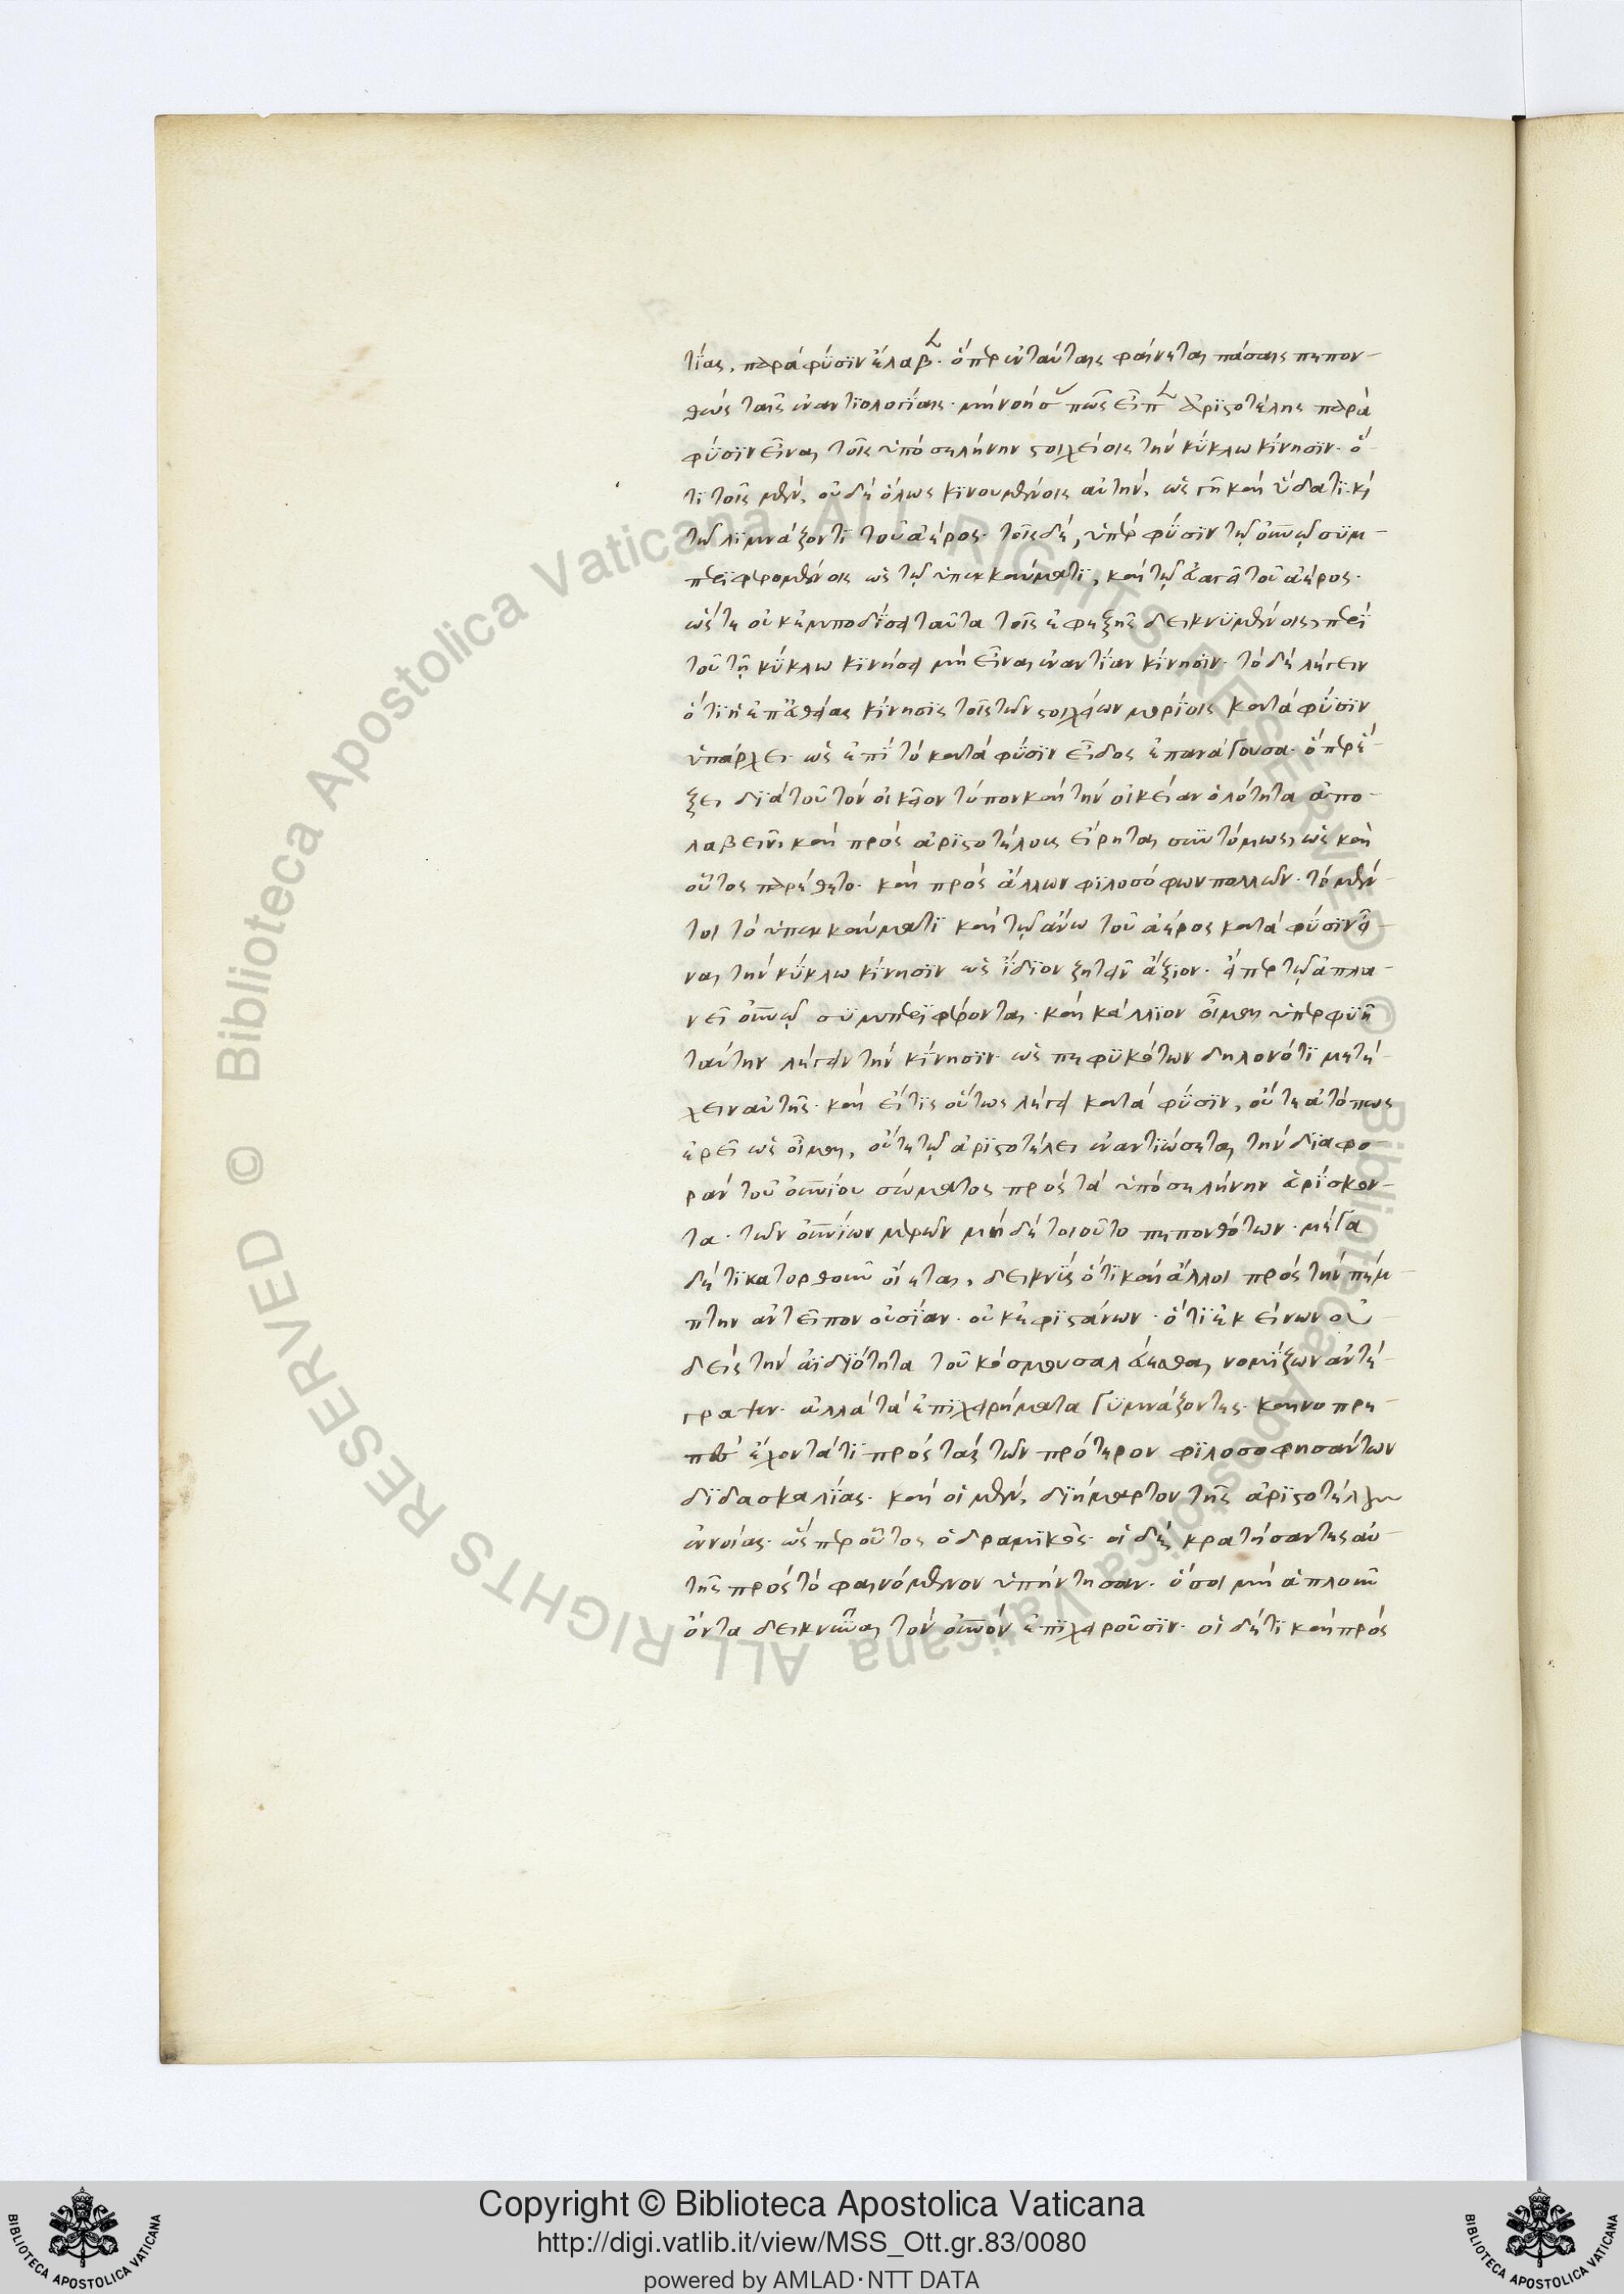 τίας, παρὰ φύσιν ἔλαβε. ὅπερ ἐν ταύταις φαίνεται πάσαις πεπον-
θὼς ταῖς ἀναντιολογίαις. μὴ νοήσας πῶς εἶπεν ἀριστοτέλης παρὰ
φύσιν εἶναι τοῖς ὑπὸ σελήνην στοιχείοις τὴν κύκλω κίνησιν. ὅ-
τι τοῖς μὲν, οὐδὲ ὅλως κινουμένοις αὐτὴν, ὡς γῆ καὶ ὕδατι. καὶ
τῷ λιμνάζοντι τοῦ ἀέρος. τοῖς δὲ, ὑπὲρ φύσιν τῷ οὐνῷ συμ-
περιφερομένοις ὡς τῷ ὑπεκκαύματι, καὶ τῷ εὐαγεῖ τοῦ ἀέρος.
ὥστε οὐκ ἐμποδίσει ταῦτα τοῖς ἐφεξῆς δεικνυμένοις, περὶ
τοῦ τῇ κύκλω κινήσει μὴ εἶναι ἐναντίαν κίνησιν. τὸ δὲ λέγειν
ὅτι ἡ ἐπ εὐθείας κίνησις τοῖς τῶν στοιχείων μορίοις κατὰ φύσιν
ὑπάρχει. ὡς ἐπὶ τὸ κατὰ φύσιν εἶδος ἐπανάγουσα. ὅπερ ἕ-
ξει διὰ τοῦ τὸν οἰκεῖον τόπον καὶ τὴν οἰκείαν ὁλότητα ἀπο-
λαβεῖν, καὶ πρὸς ἀριστοτέλους εἴρηται συντόμως, ὡς καὶ
οὗτος παρέθετο. καὶ πρὸς ἄλλων φιλοσόφων πολλῶν. τὸ μέν-
τοι τὸ ὑπεκκαύματι καὶ τῷ ἄνω τοῦ ἀέρος κατὰ φύσιν εἶ-
ναι τὴν κύκλω κίνησιν ὡς ἴδιον ζητεῖν ἄξιον. εἴπερ τῷ ἀπλα-
νεῖ οὐνῷ συμπεριφέρονται. καὶ κάλλιον οἶμαι ὑπερφυῆ
ταύτην λέγειν τὴν κίνησιν. ὡς πεφυκότων δηλονότι μετέ-
χειν αὐτῆς. καὶ εἴ τις οὕτως λέγει κατὰ φύσιν, οὔτε ἀτόπως
ἐρεῖ ὡς οἶμαι, οὔτε τῷ ἀριστοτέλει ἐναντιώσεται τὴν διαφο-
ρὰν τοῦ οὐνίου σώματος πρὸς τὰ ὑπὸ σελήνην εὑρίσκον-
τα. τῶν οὐνίων μερῶν μὴ δὲ τοιοῦτο πεπονθότων. μέγα
δέ τι κατορθοῦν οἴεται, δεικνὺς ὅτι καὶ ἄλλοι πρὸς τὴν πέμ-
πτην ἀντεῖπον οὐσίαν. οὐκ ἐφιστάνων. ὅτι ἐκείνων οὐ-
δεὶς τὴν ἀϊδιότητα τοῦ κόσμου σαλεύεσθαι νομίζων ἀντέ-
γραψεν. ἀλλὰ τὰ ἐπιχειρήματα γυμνάζοντες. καινοπρε-
πὲς ἔχοντά τι πρὸς τὰς τῶν πρότερον φιλοσοφησάντων
διδασκαλίας. καὶ οἱ μὲν, διήμαρτον τῆς ἀριστοτέλους
ἐννοίας. ὥσπερ οὗτος ὁ δραμικός. οἱ δὲ, κρατήσαντες αὐ-
τῆς πρὸς τὸ φαινόμενον ὑπήντησαν. ὅσοι μὴ ἁπλοῦν
ὄντα δεικνύναι τὸν οὐνὸν ἐπιχειροῦσιν. οἱ δέ τι καὶ πρὸς
Copyright © Biblioteca Apostolica Vaticana
http://digi.vatlib.it/view/MSS_Ott.gr.83/0080
powered by AMLAD·NTT DATA
BIBLIOTECA APOSTOLICA VATICANA
BIBLIOTECA APOSTOLICA VATICANA
© Biblioteca Apostolica Vaticana ALL RIGHTS RESERVED
© Biblioteca Apostolica Vaticana ALL RIGHTS RESERVED